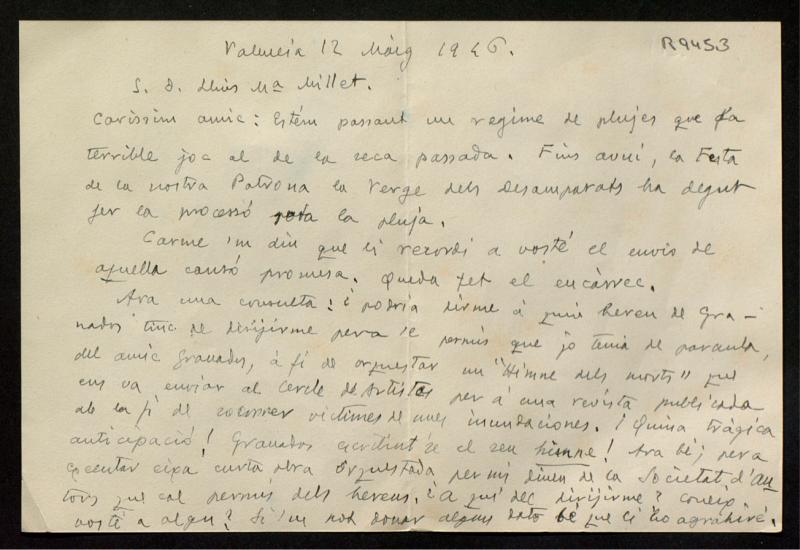 R9453
Valencia 12 Màig 1946.
S. D. Lluis Mª Millet.
Carissim amic: Estém passant un regime de plujes que fa
terrible joc al de la seca passada. Fins avui, la Festa
de la nostra Patrona la Verge dels Desamparats ha degut
fer la processó sota la pluja.
Carme 'm diu que li recordi a vosté el envio de
aquella cansó promesa. Queda fet el encàrrec.
Ara una consulta: ¿podria dirme á quin hereu de Gra-
nados tinc de dirijirme pera 'l permis que jo tenia de paraula,
del amic Granados, á fi de orquestar un "Himne dels morts" que
ens va enviar al Cercle de Artistes per á una revista publicada
ab la fi de socorrer victimes de unes inundaciones. ¡Quina tràgica
anticipació! Granados escribint se el seu himne! Ara bé; pera
executar eixa curta obra orquestada per mi diuen de la Societat d'Au
tors que cal permis dels hereus. ¿A qui dec dirijirme? Coneix
vosté a algun? Si 'm pot donar algun dato bé que li ho agrahiré.